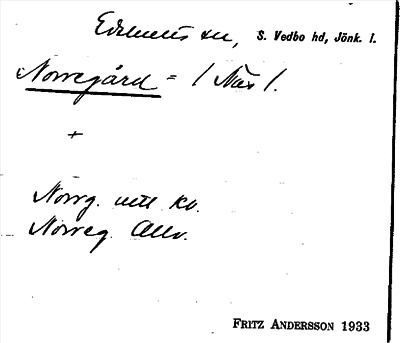 Edshults sn, S. Vedbo hd, Jönk. l.
Norregård = / Näs /.
+
Norrg. utt kv.
Norreg Allv.
FRITZ ANDERSSON 1933